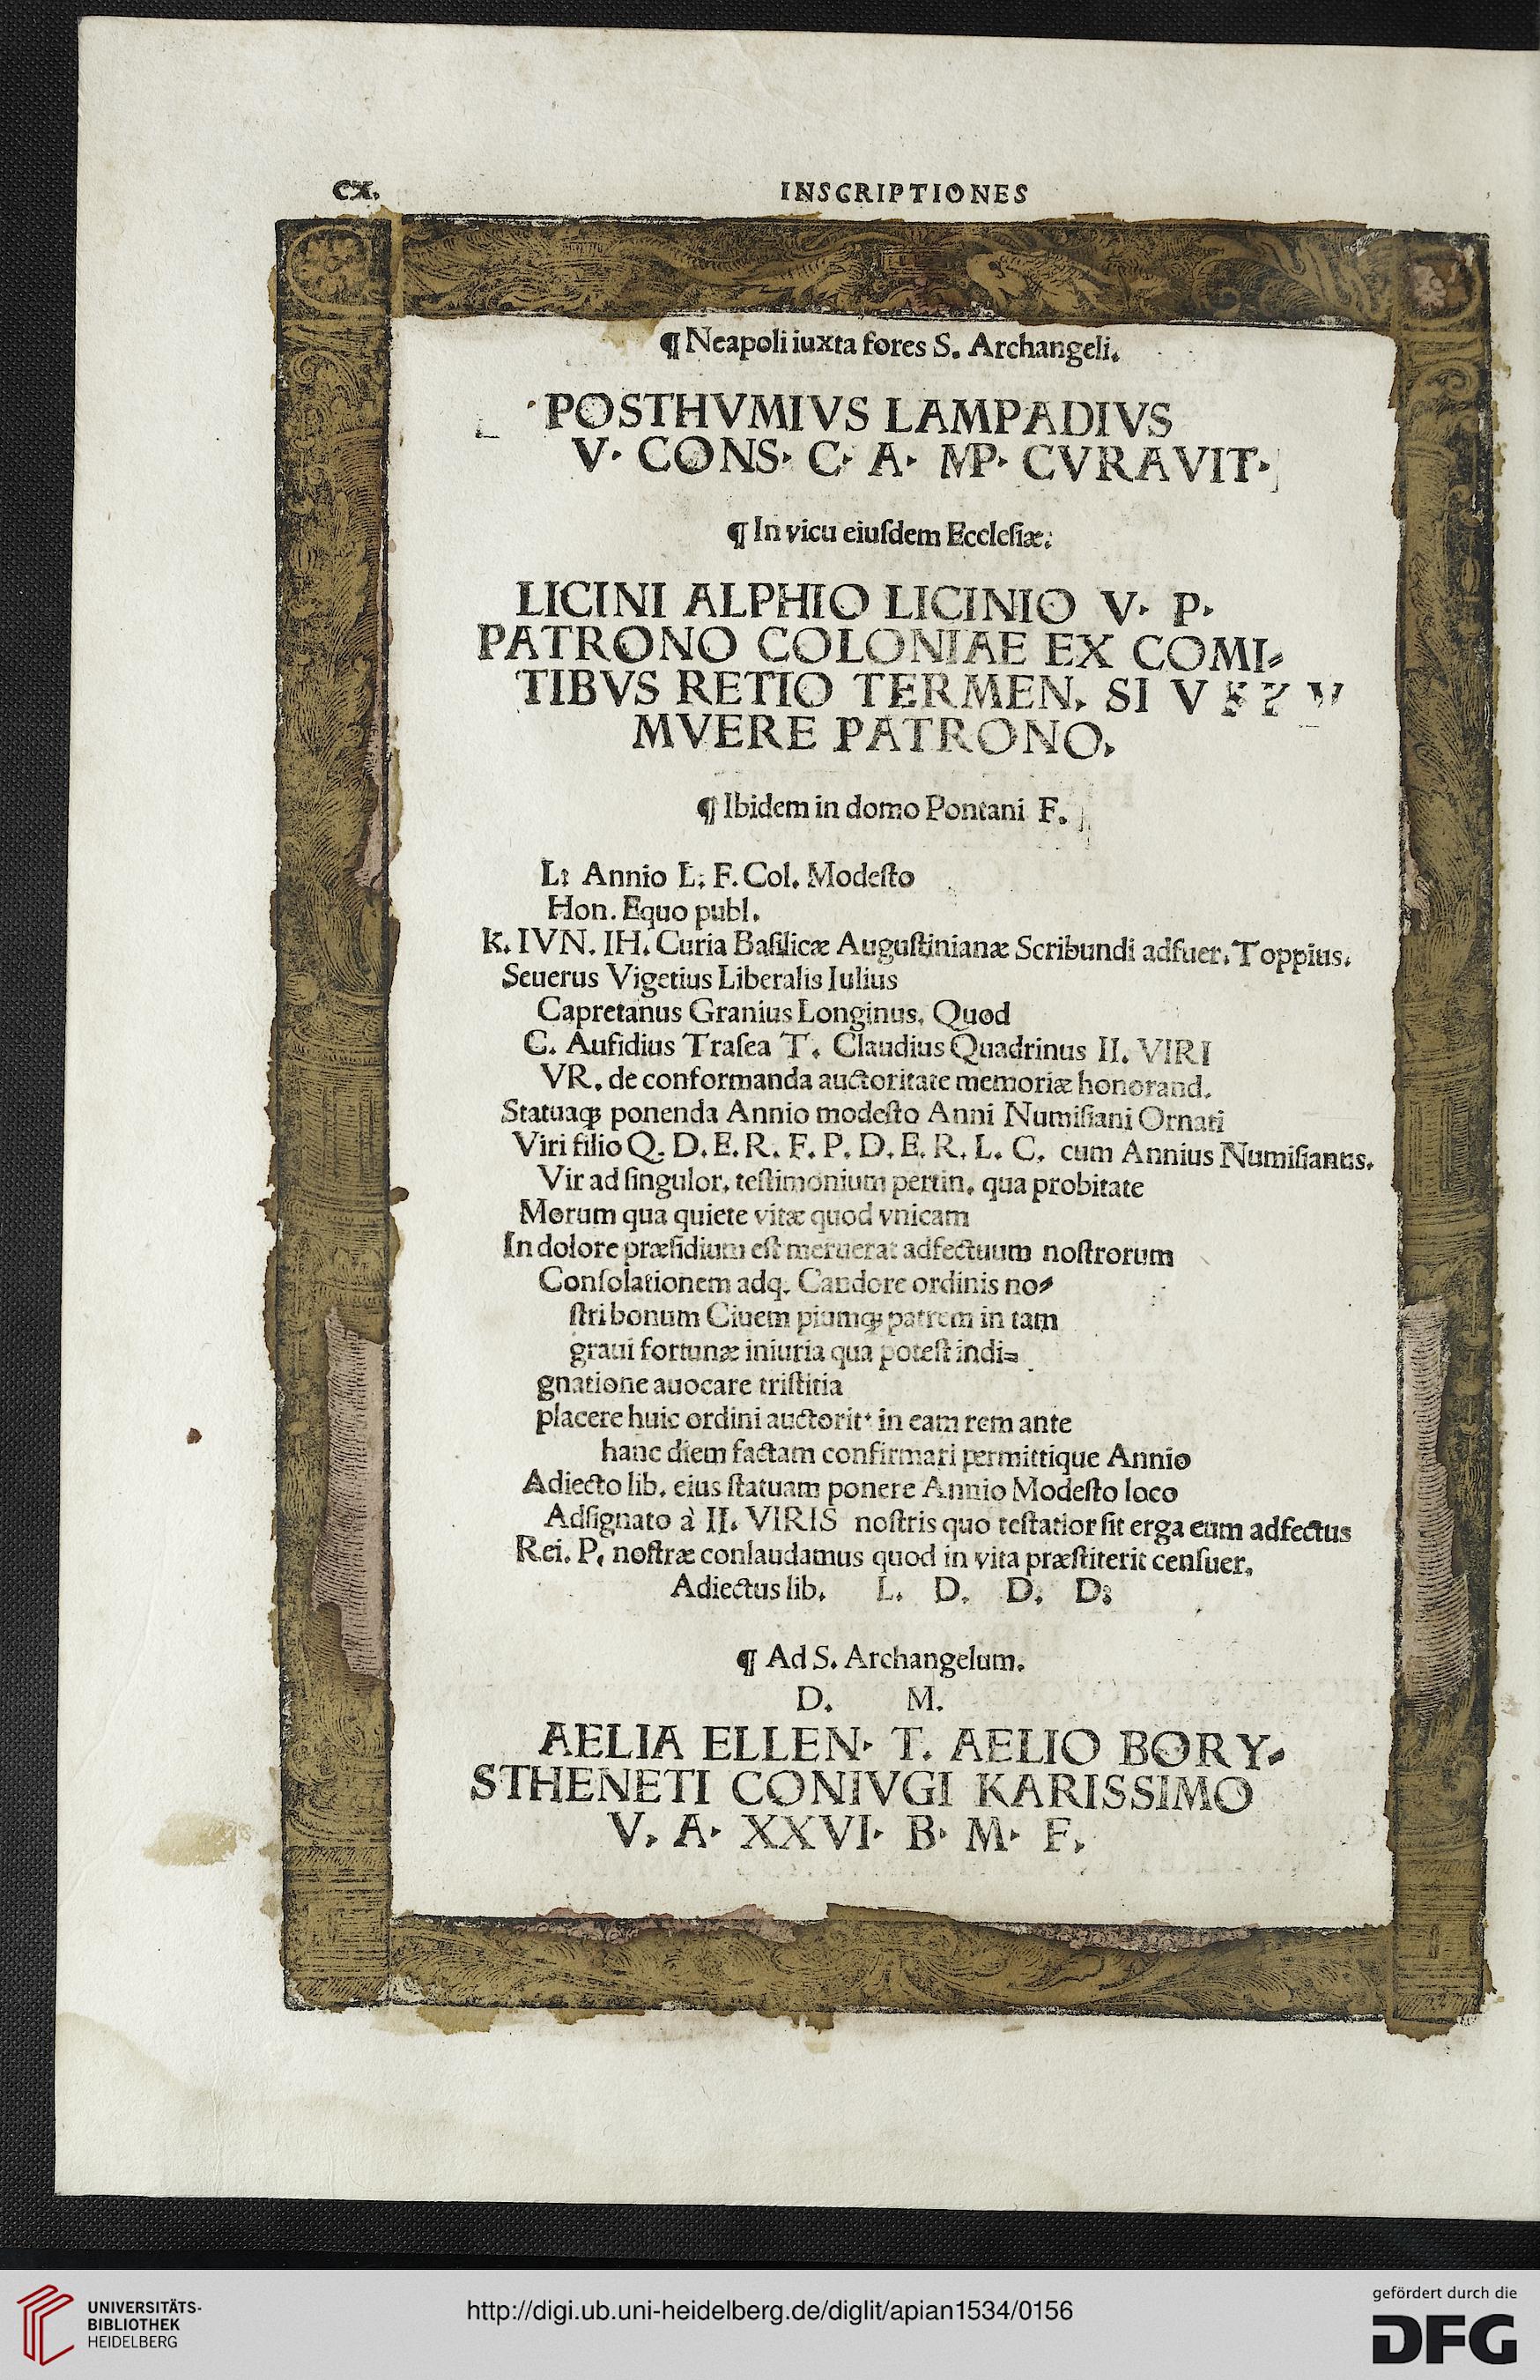 CX.
INSCRIPTIONES
¶ Neapoli iuxta fores S. Archangeli.
POSTHVMIVS LAMPADIVS
V. CONS. C. A. MP. CVRAVIT.
¶ In vicu eiuſdem Eccleſiæ.
LICINI ALPHIO LICINIO V. P.
PATRONO COLONIAE EX COMI⸗
TIBVS RETIO TERMEN. SI V
MVERE PATRONO.
¶ Ibidem in domo Pontani F.
L: Annio L: F. Col. Modeſto
Hon. Equo publ.
K. IVN. IH. Curia Baſilicæ Auguſtinianæ Scribundi adfuer. Toppius.
Seuerus Vigetius Liberalis Iulius
Capretanus Granius Longinus. Quod
C. Aufidius Traſea T. Claudius Quadrinus II. VIRI
VR. de conformanda auctoritate memoriæ honorand.
Statuaqꝫ ponenda Annio modeſto Anni Numiſiani Ornati
Viri filio Q. D. E. R. F. P. D. E. R. L. C. cum Annius Numiſianus.
Vir ad ſingulor. teſtimonium pertin. qua probitate
Morum qua quiete vitæ quod vnicam
In dolore præſidium eſt meruerat adfectuum noſtrorum
Conſolationem adq. Candore ordinis no⸗
ſtri bonum Ciuem piumqꝫ patrem in tam
graui fortunæ iniuria qua poteſt indi⸗
gnatione auocare triſtitia
placere huic ordini auctorit. in eam rem ante
hanc diem factam confirmari permittique Annio
Adiecto lib. eius ſtatuam ponere Annio Modeſto loco
Adſignato à II. VIRIS noſtris quo teſtatior ſit erga eum adfectus
Rei. P. noſtræ conlaudamus quod in vita præſtiterit cenſuer.
Adiectus lib. L. D. D. D:
¶ Ad S. Archangelum.
D. M.
AELIA ELLEN. T. AELIO BORY⸗
STHENETI CONIVGI KARISSIMO
V. A. XXVI. B. M. F.
UNIVERSITÄTS-
BIBLIOTHEK
HEIDELBERG
http://digi.ub.uni-heidelberg.de/diglit/apian1534/0156
gefördert durch die
DFG